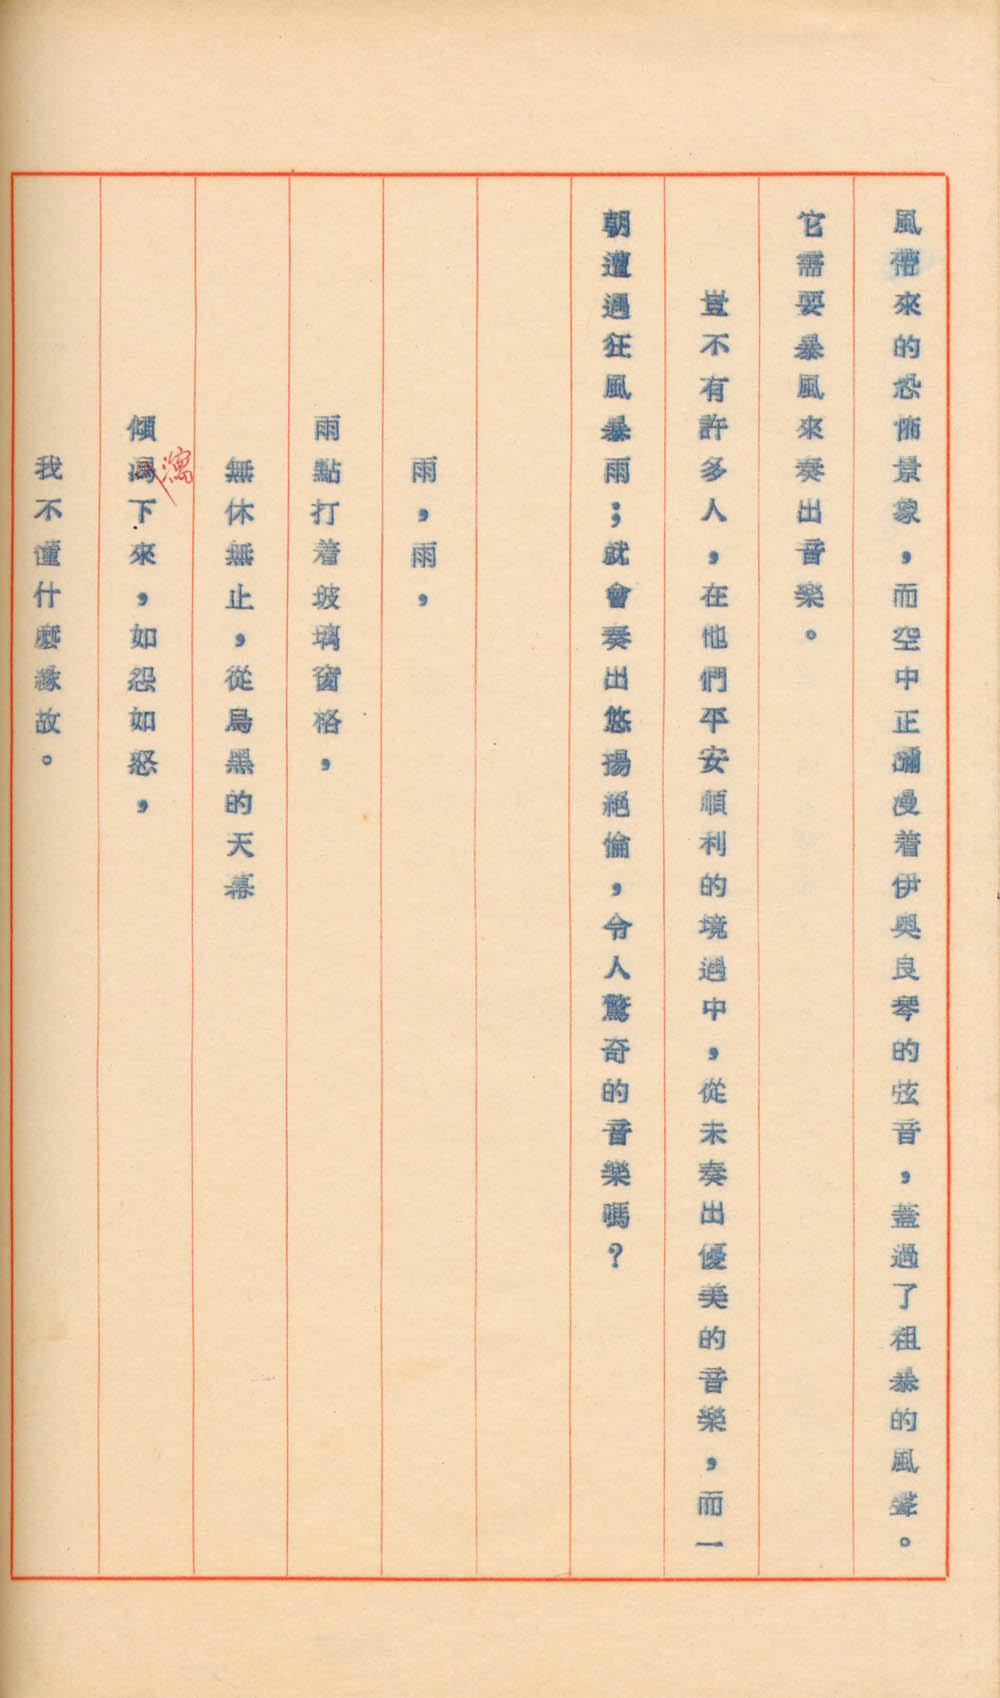 風帶來的恐怖景象，而空中正彌漫着伊奧良琴的弦音，蓋過了粗暴的風聲。
它需要暴風來奏出音樂。
豈不有許多人，在他們平安順利的境遇中，從未奏出優美的音樂，而一
朝遭遇狂風暴雨；就會奏出悠揚絕倫，令人驚奇的音樂嗎？
雨，雨，
雨點打着玻璃窗格，
無休無止，從烏黑的天幕
傾瀉下來，如怨如怒，
瀉
我不懂什麼緣故。